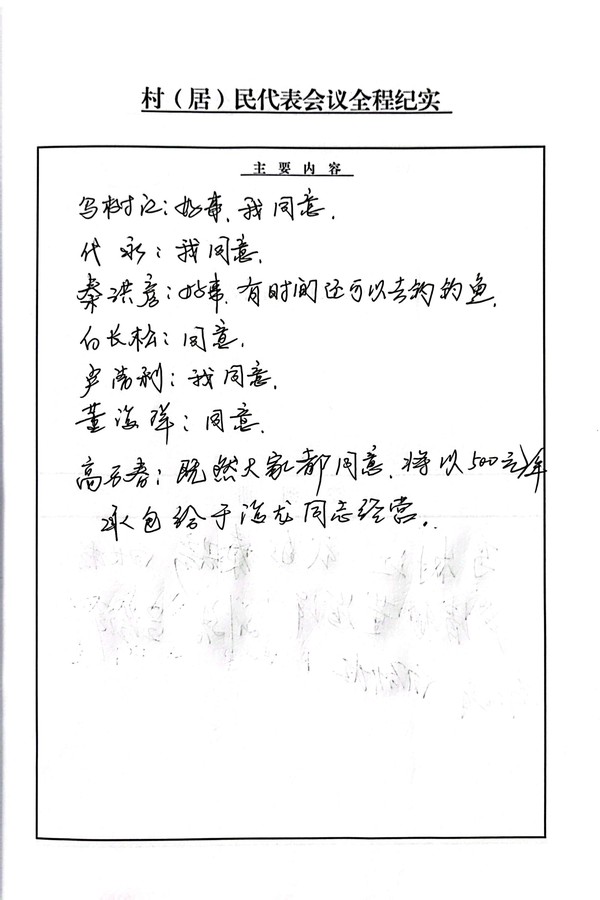 村（居）民代表会议全程纪实
主要内容
马树江：好事，我同意。
代永：我同意。
秦洪彦：好事，有时间还可以去钓钓鱼。
白长松：同意。
卢清利：我同意。
董海祥：同意。
高万春：既然大家都同意，将以500元/年
承包给于海龙同志经营。